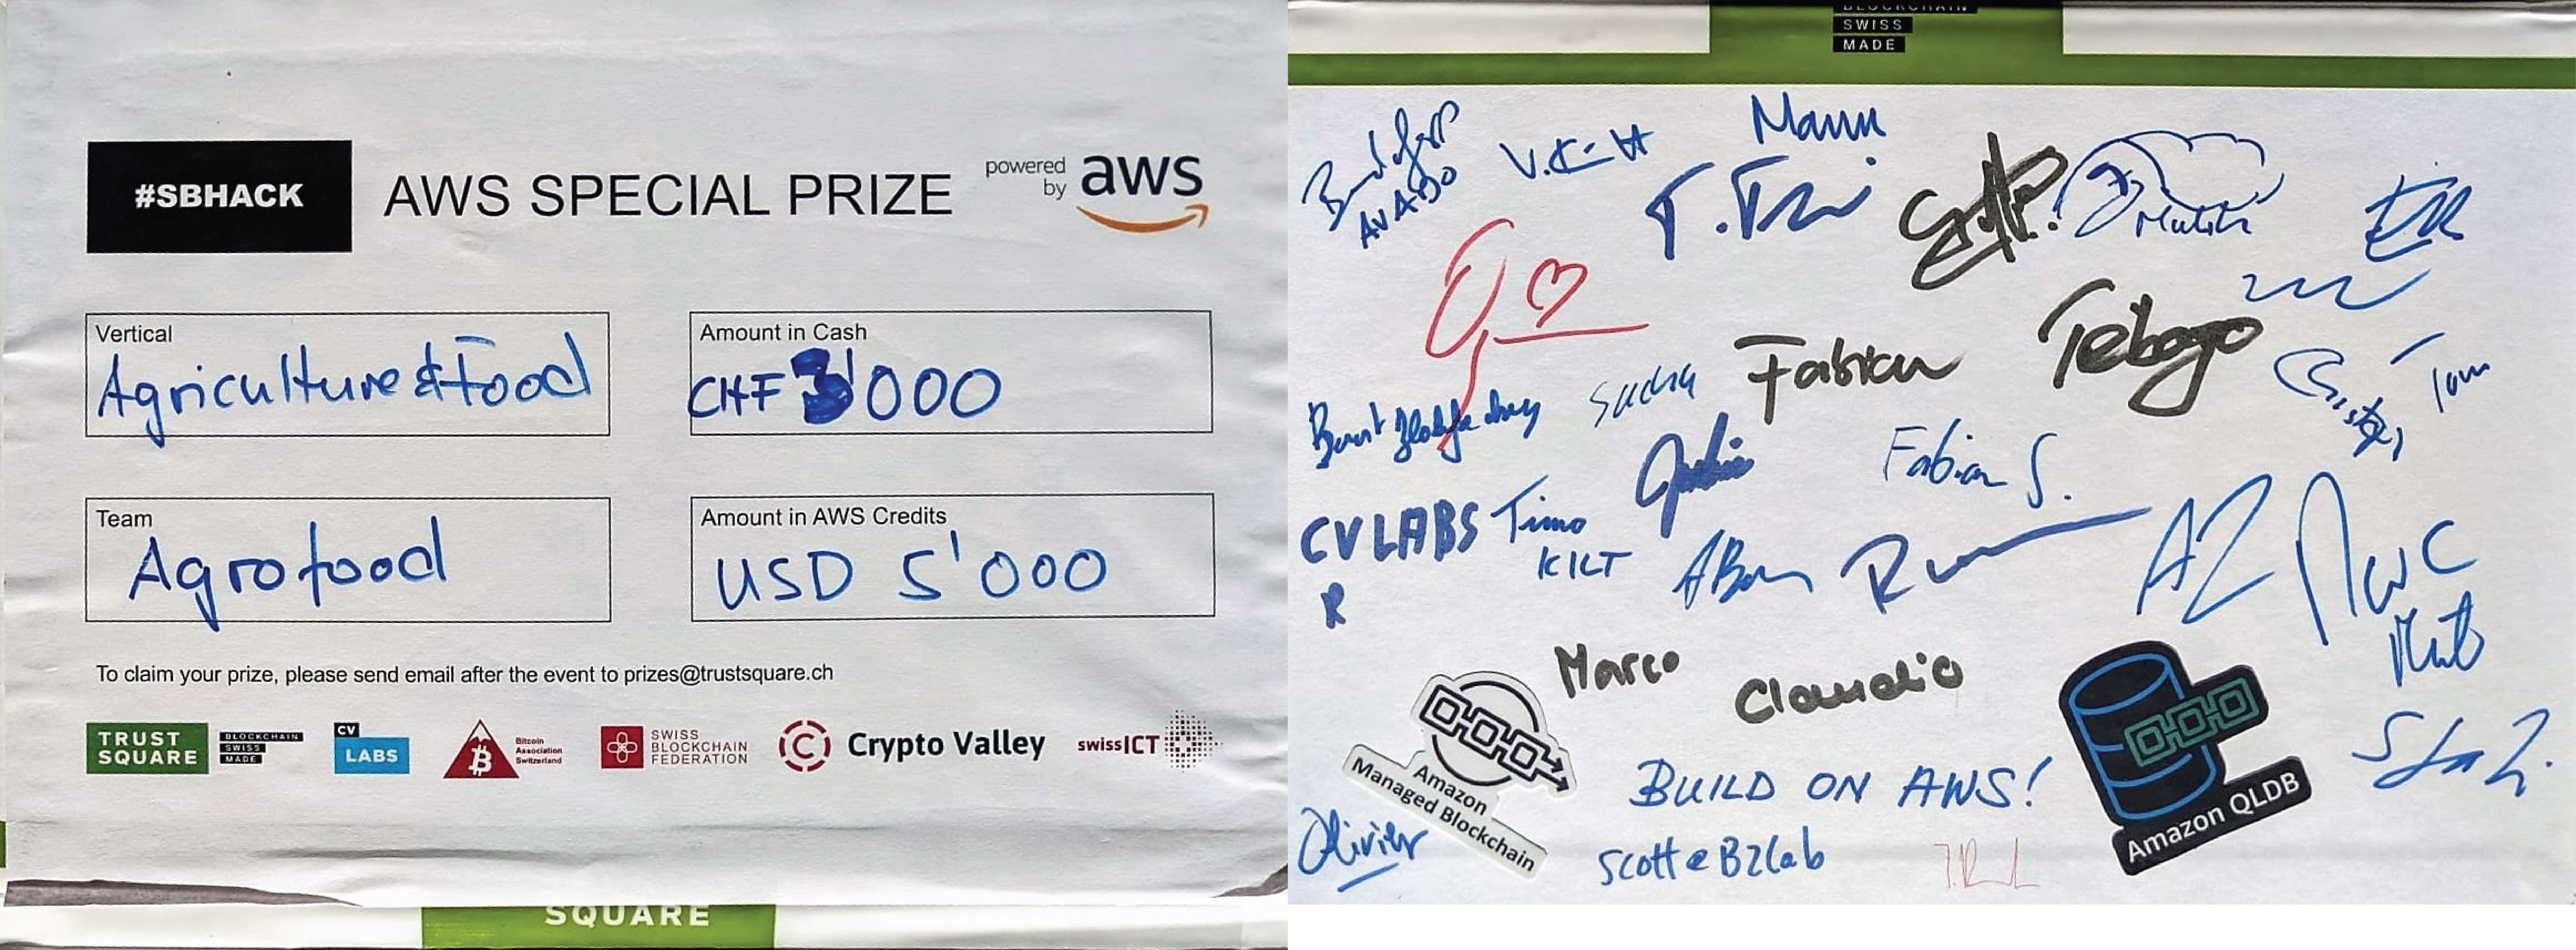 #SBHACK
AWS SPECIAL PRIZE
powered
by
aws
Vertical
Agriculture & Food
Amount in Cash
CHF 3'000
Team
Agrofood
Amount in AWS Credits
USD 5'000
To claim your prize, please send email after the event to prizes@trustsquare.ch
TRUST
SQUARE
BLOCKCHAIN
SWISS
MADE
CV
LABS
Bitcoin
Association
Switzerland
SWISS
BLOCKCHAIN
FEDERATION
Crypto Valley
swissICT
SQUARE
BLOCKCHAIN
SWISS
MADE
AVADO
Manu
Fabian
Tebogo
Sacha
Tom
Fabian S.
CV LABS
Timo
KILT
R
AZ
Marco
Claudio
Amazon
Managed Blockchain
BUILD ON AWS!
Amazon QLDB
Olivier
Scott @ B2Lab